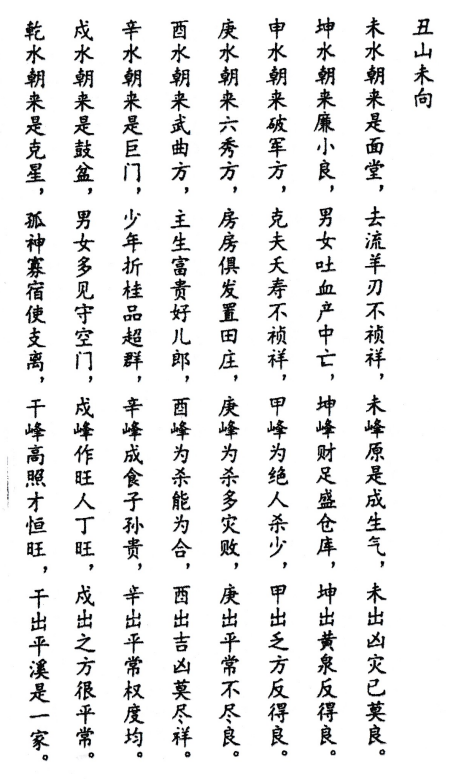 丑山未向
未水朝来是面堂，去流羊刃不祯祥，未峰原是成生气，未出凶灾已莫良。
坤水朝来廉小良，男女吐血产中亡，坤峰财足盛仓库，坤出黄泉反得良。
申水朝来破军方，克夫夭寿不祯祥，甲峰为绝人杀少，甲出乏方反得良。
庚水朝来六秀方，房房俱发置田庄，庚峰为杀多灾败，庚出平常不尽良。
酉水朝来武曲方，主生富贵好儿郎，酉峰为杀能为合，酉出吉凶莫尽祥。
辛水朝来是巨门，少年折桂品超群，辛峰成食子孙贵，辛出平常权度均。
戍水朝来是鼓盆，男女多见守空门，戍峰作旺人丁旺，戍出之方很平常。
乾水朝来是克星，孤神寡宿使支离，干峰高照才恒旺，干出平溪是一家。